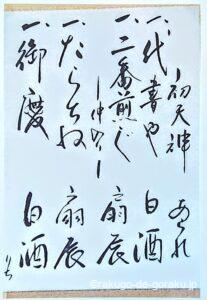 初天神
一、代書や 白酒
一、二番煎じ 扇辰
仲入り
一、たらちね 扇辰
一、御慶 白酒
©rakugo-de-goraku.jp